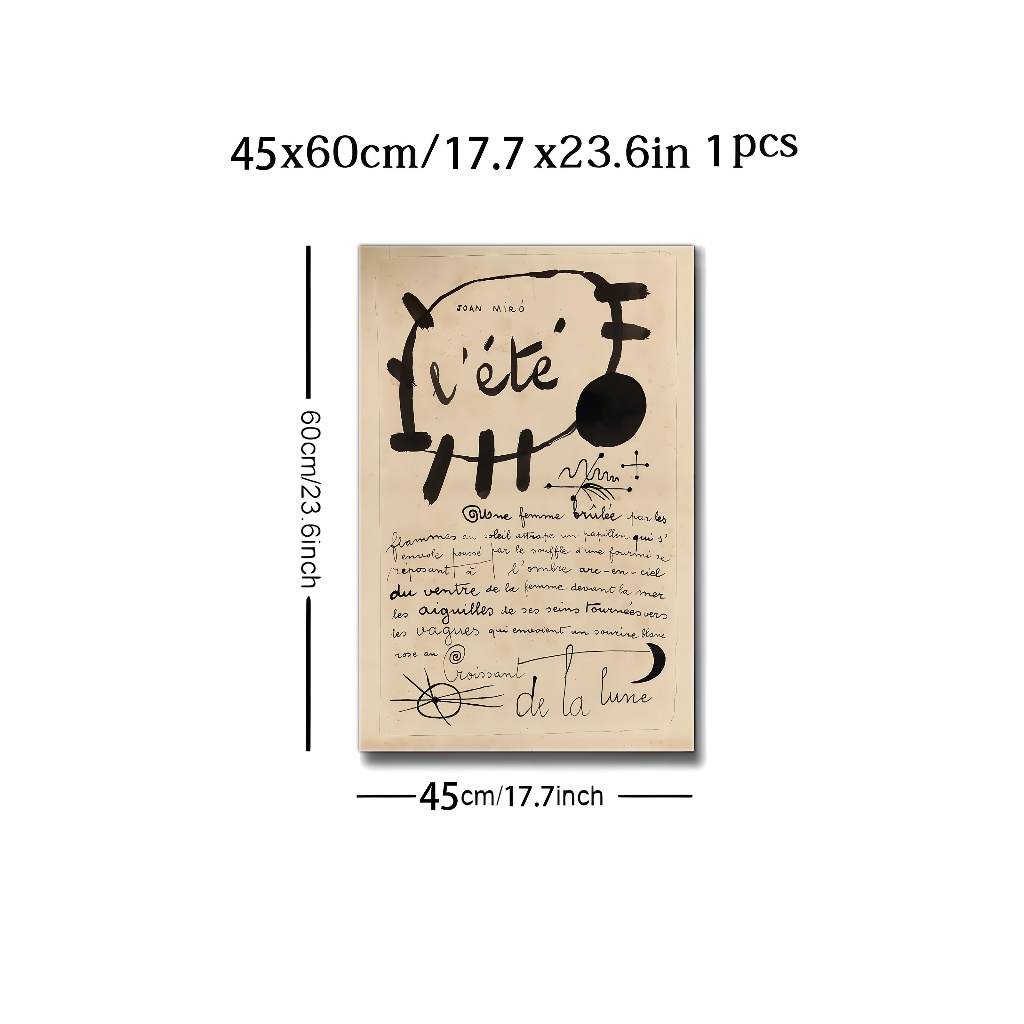 45x60cm/17.7 x23.6in 1pcs
JOAN MIRÓ
l'été
Une femme brûlée par les
flammes au soleil attrape un papillon qui s'
envole poussé par le souffle d'une fourmi se
réposant à l'ombre arc-en-ciel
du ventre de la femme devant la mer
les aiguilles de ses seins tournées vers
les vagues qui envoient un sourire blanc
rose au
Croissant
de la lune
60cm/23.6inch
45cm/17.7inch